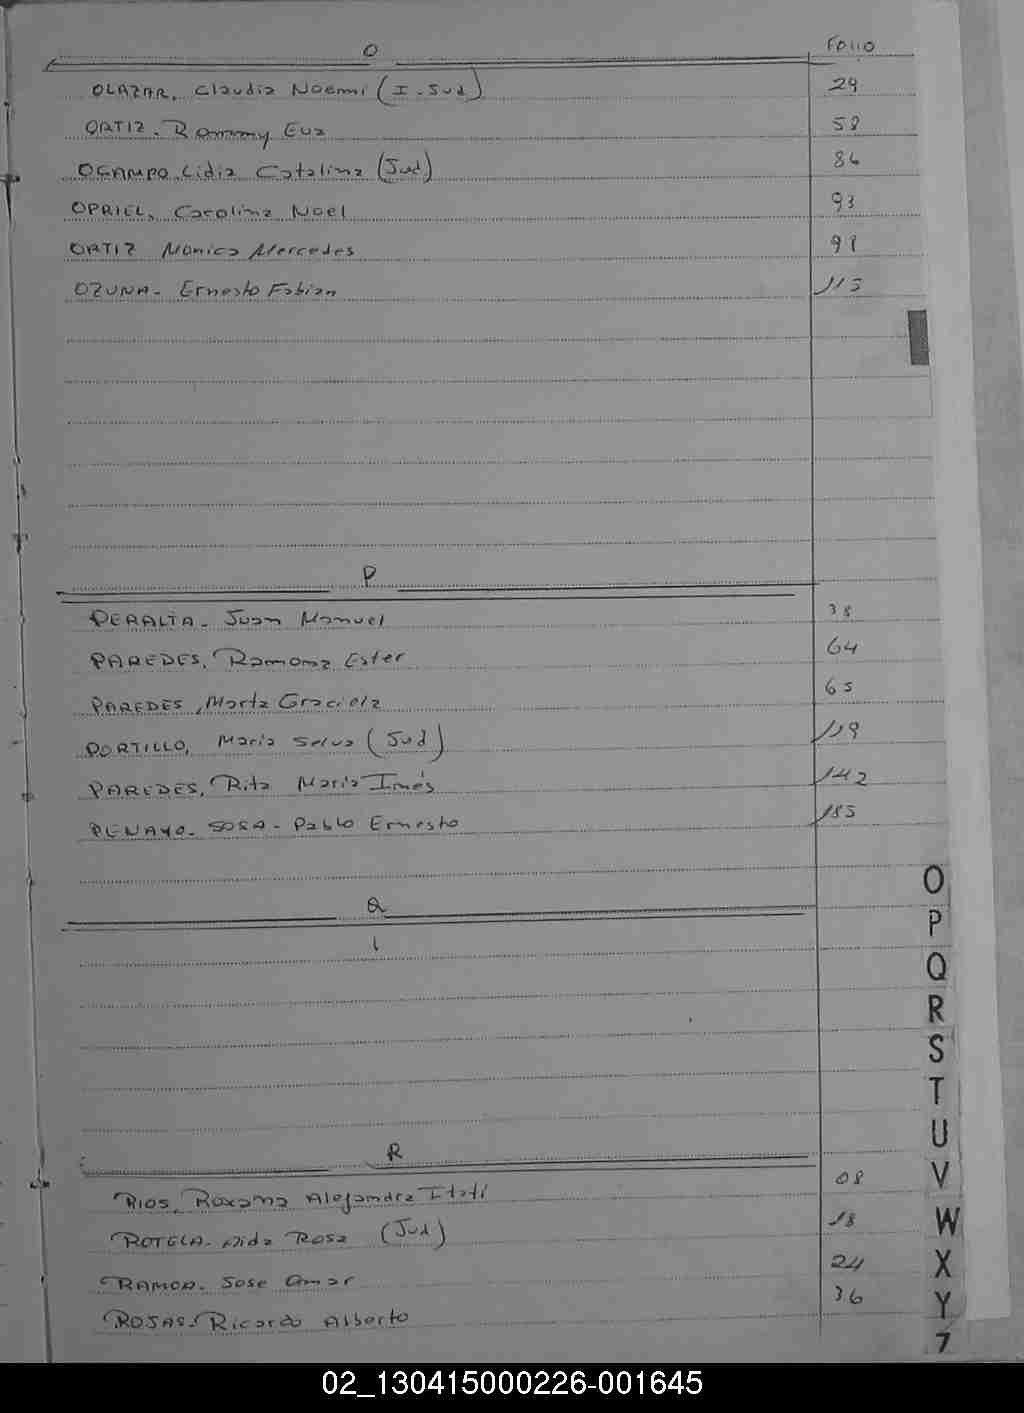 O FOLIO
OLAZAR, Claudia Noemi (I-Jud) 29
ORTIZ. Rommy Eva 58
OCAMPO Lidia Catalina (Jud) 86
OPRIEL, Carolina Noel 93
ORTIZ Monica Mercedes
OZUNA- Ernesto Fabian 115
P
PERALTA- Juan Manuel 38
PAREDES, Ramona Ester 64
PAREDES, Marta Graciela 65
PORTILLO, Maria Selva (Jud) 119
PAREDES, Rita Maria Inés 142
PENAYO- SOSA- Pablo Ernesto 185
Q
R
RIOS, Roxana Alejandra Itatí 08
ROTELA- Aida Rosa (Jud) 18
RAMOA- Jose Omar 24
ROJAS- Ricardo Alberto 36
O
P
Q
R
S
T
U
V
W
X
Y
Z
02_130415000226-001645